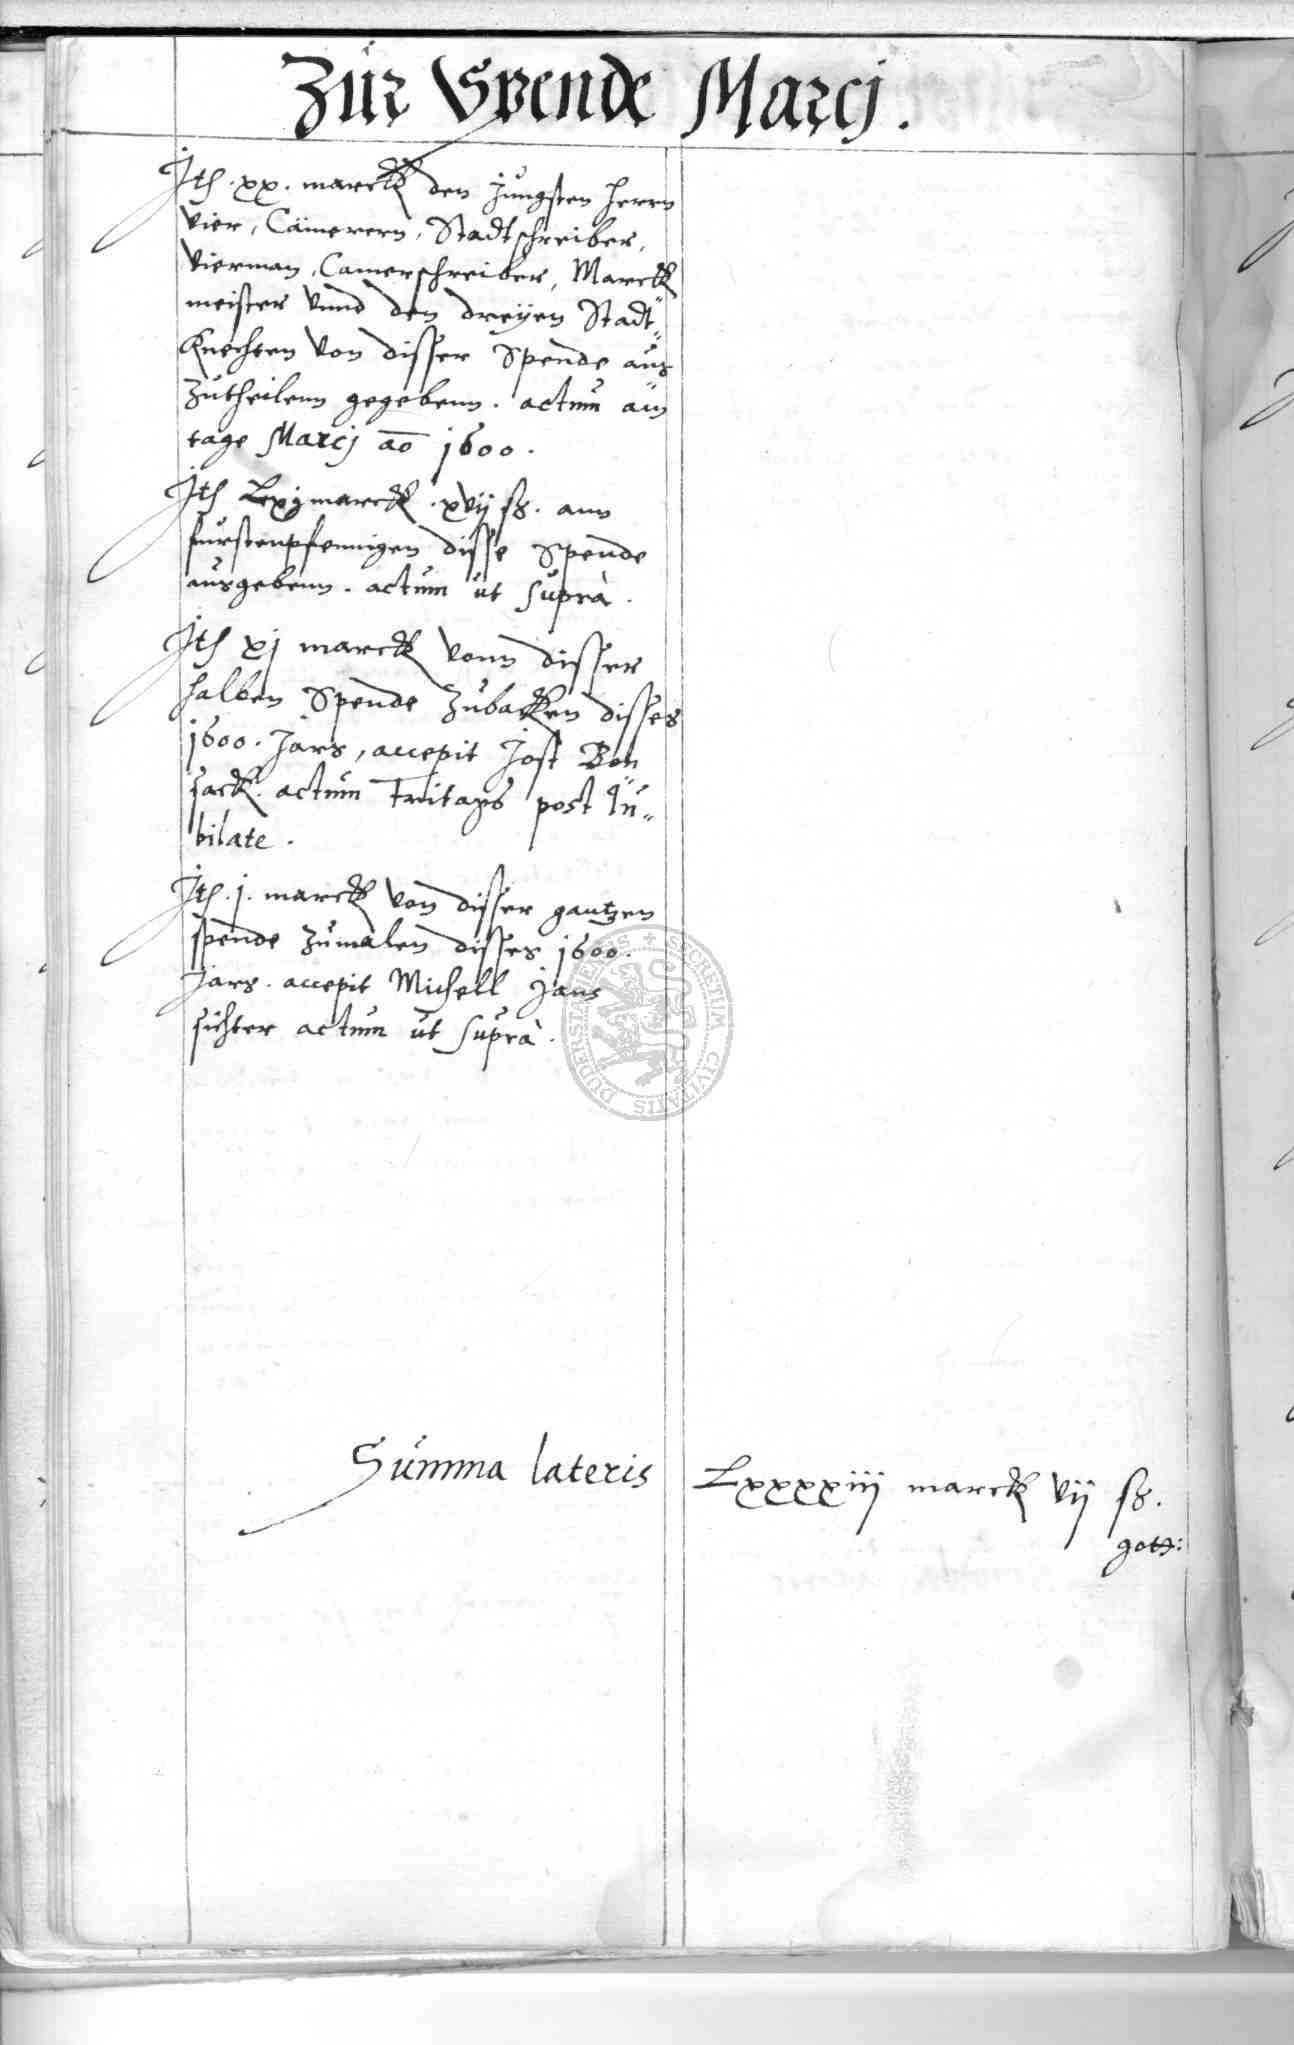 Zur Spende Marcj.
Jtē. xx. marck den Jungsten herrn
vier, Cämerern, Stadtschreiber,
Vierman, Camerschreiber, Marck
meister vnnd den dreÿen Stadt„
Knechten von disser Spende aus
zutheilenn gegebenn. actum am
tage Marcj ao 1600.
Jtē Lxj marck. xvij ß. ann
furstenpfennigen disse Spende
ausgebenn. actum ut suprà.
Jtē xj marck vonn disser
halben Spende zubacken disses
1600. Jars, accepit Jost Bon
sack. actum Freitags post Ju„
bilate.
Jtē. j. marck von disser gantzen
spende zumalen disses 1600.
Jars. accepit Michell Jans
sichter actum ut suprà.
Summa lateris Lxxxxiij marck vij ß.
gott:
SECRETUM CIVITATIS DUDERSTATENSIS